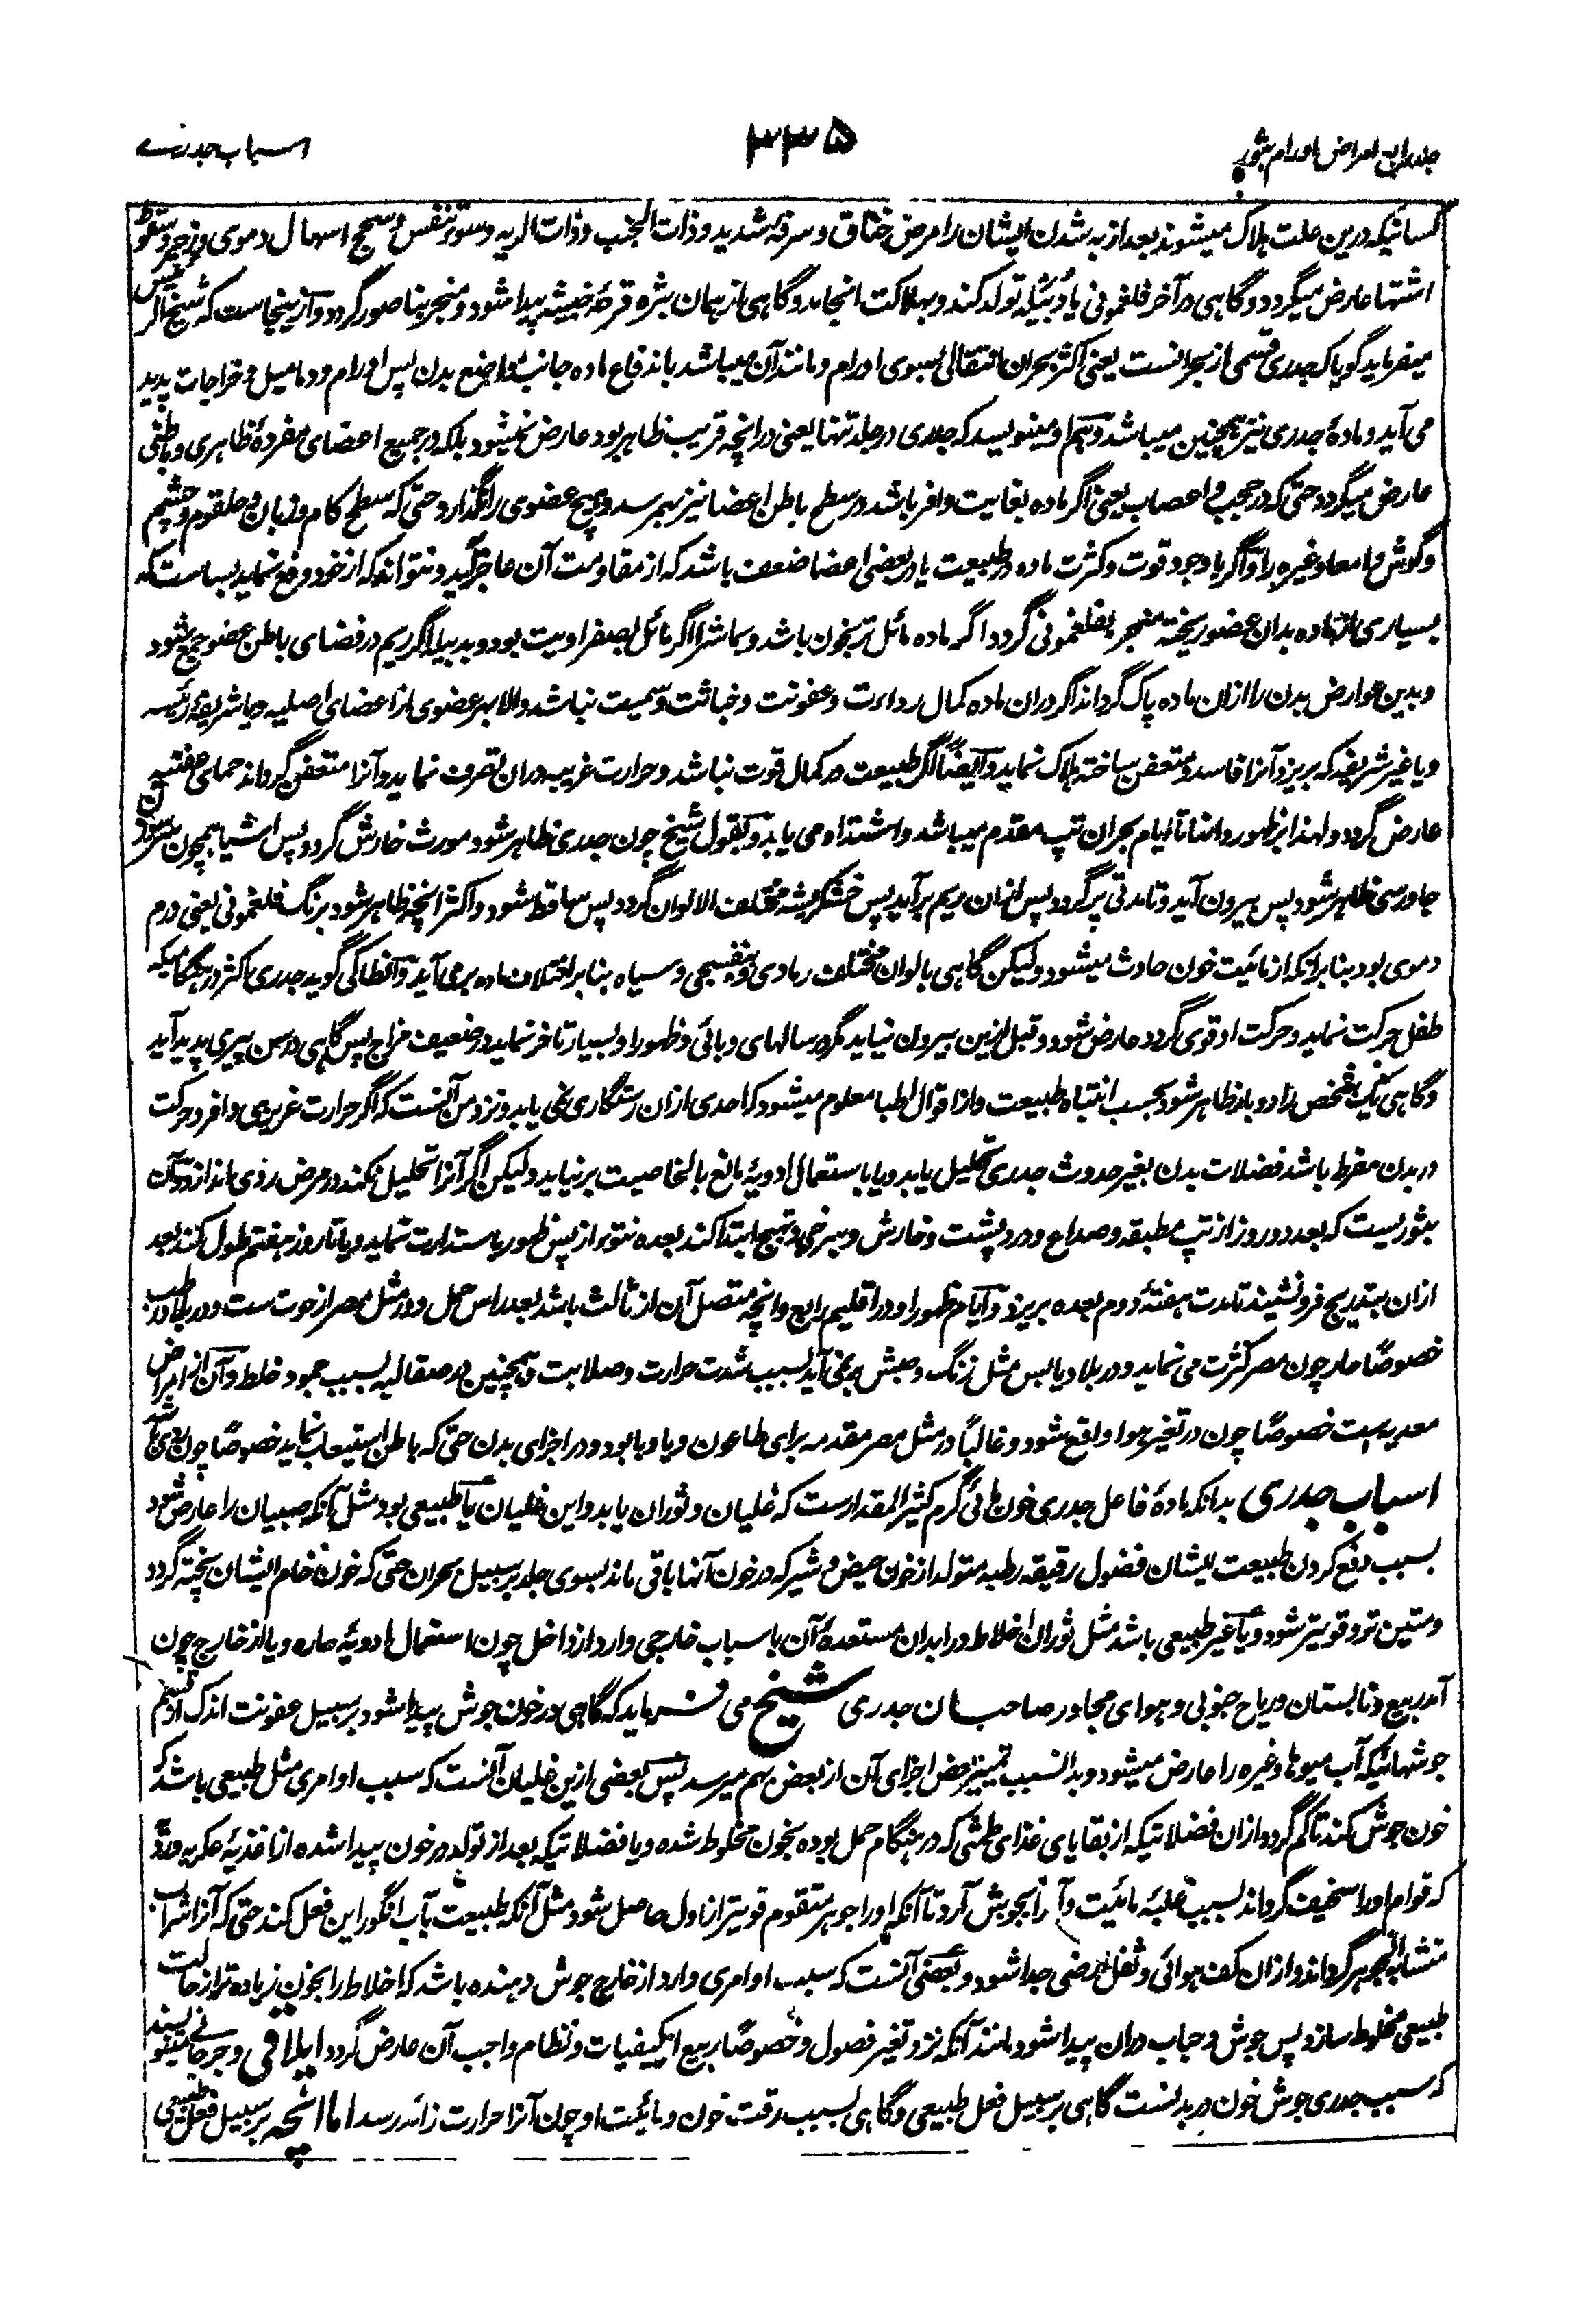 جلد رابع امراض اورام بثور
۳۳۵
اسباب جدری
کسانیکه درین علت هلاک میشوند بعد از به شدن ایشان را مرض خناق و سرفهٔ شدید و ذات الجنب و ذات الریه و ستور تنفس و سحج اسهال دموی و زحیر و سقوط
اشتها عارض میگردد و گاهی در آخر فلغمونی یا دبیله تولد کند و بهلاکت انجامد و گاهی از همان بثره قرحهٔ خبیثه پیدا شود و منجر بناصور گردد و ازینجاست که شیخ الرئیس
میفرماید گویا که جدری قسمی از بحرانست یعنی اکثر بحران انتقالی بسوی اورام و مانند آن میباشد باندفاع ماده جانب مواضع بدن پس اورام و دمامیل و خراجات پدید
می آید و مادهٔ جدری نیز همچنین میباشد و هم او مینویسد که جدری در جلد تنها یعنی در انچه قریب ظاهر بود عارض نمیشود بلکه در جمیع اعضای مفردهٔ ظاهری و باطنی
عارض میگردد حتی که در حجب و اعصاب یعنی اگر ماده بغایت وافر باشد در سطح باطن اعضا نیز بهم رسد و هیچ عضوی را نگذارد حتی که سطح کام و زبان و حلقوم و چشم
و گوش و امعا و غیره را و اگر باوجود قوت و کثرت ماده در طبیعت یا در بعضی اعضا ضعف باشد که از مقاومت آن عاجز آید و نتواند که از خود دفع نماید بسیاست که
بسیاری از ماده بدان عضو ریخته منجر بفلغمونی گردد اگر ماده مائل تر بخون باشد و بماشرا اگر مائل بصفراویت بود و بدبیله اگر ریم در فضای باطن عضو جمع شود
و بدین عوارض بدن را ازان ماده پاک گرداند اگر دران ماده کمال رداءت و عفونت و خباثت و سمیت نباشد والا بهر عضوی از اعضای اصلیه و یا شریفهٔ رئیسه
و یا غیر شریفه که بریزد آنرا فاسد و متعفن ساخته هلاک نماید و ایضاً اگر طبیعت در کمال قوت نباشد و حرارت غریبه دران تصرف نماید و آنرا متعفن گرداند حمای عفنیه
عارض گردد و لهذا بظهور و امتاتا ایام بحران تپ مقدم میباشد و اشتداد می یابد و بقول شیخ چون جدری ظاهر شود مورث خارش گردد پس اشیا همچون سرسوزن
جاورسی ظاهر شود پس بیرون آید و تا مدتی پر گردد پس ازان ریم بر آید پس خشکریشه مختلف الالوان گردد پس ساقط شود و اکثر انچه ظاهر شود برنگ فلغمونی یعنی ورم
دموی بود بنا بر آنکه از مائیت خون حادث میشود و لیکن گاهی بالوان مختلف رمادی و بنفسجی و سیاه بنا بر اختلاف ماده برمی آید و انطاکی گوید جدری اکثر در هنگامیکه
طفل حرکت نماید و حرکت او قوی گردد عارض شود و قبل ازین بیرون نیاید مگر در سالهای وبائی و ظهور او بسیار تاخر نماید در ضعیف مزاج پس گاهی در سن پیری پدید آید
و گاهی یک شخص را دو بار ظاهر شود بحسب انتباه طبیعت و از اقوال اطبا معلوم میشود که احدی ازان رستگاری نمی یابد و نزد من آنست که اگر حرارت غریزی وافر و حرکت
در بدن مفرط باشد فضلات بدن بغیر حدوث جدری تحلیل یابد و یا باستعمال ادویهٔ مانع بالخاصیت بر نیاید و لیکن اگر آنرا تحلیل نکند در مرض ردی اندازد و آن
بثوریست که بعد دو روز از تپ مطبقه و صداع و درد پشت و خارش و سرخی و تهیج ابتدا کند بعده نتو بر از پس ظهور باستدارت نماید و یا تا روز هفتم طول کند بعد
ازان بتدریج فرو نشیند تا مدت هفتهٔ دوم بعده بریزد و ایام ظهور او در اقلیم رابع و انچه متصل آن از ثالث باشد بعد راس حمل و در مثل مصر از حوت ست و در بلاد رطب
خصوصاً حار چون مصر کثرت می نماید و در بلاد یابس مثل زنگ و حبش برنمی آید بسبب شدت حرارت و صلابت و همچنین در صقالیه بسبب جمود خلط و آن از امراض
معدیه است خصوصاً چون در تغیر هوا واقع شود و غالباً در مثل مصر مقدمه برای طاعون و یا وبا بود و در اجزای بدن حتی که باطن استیعاب نماید خصوصاً چون
اسباب جدری بدانکه مادهٔ فاعل جدری خون مائی گرم کثیر المقدارست که غلیان و ثوران یابد و این غلیان یا طبیعی بود مثل آنکه صبیان را عارض شود
بسبب دفع کردن طبیعت ایشان فضول رقیقه رطبه متولد از خون حیض و شیر که در خون آنها باقی ماند بسوی جلد بر سبیل بحران حتی که خون خام ایشان پخته گردد
و متین تر و قویتر شود و یا غیر طبیعی باشد مثل ثوران اخلاط در ابدان مستعدهٔ آن باسباب خارجی وارد از داخل چون استعمال ادویهٔ حاره و یا از خارج چون
آمدن ربیع و تابستان و ریاح جنوبی و هوای مجاور صاحبان جدری شیخ می فرماید که گاهی در خون جوش پیدا شود بر سبیل عفونت اندک از قسم
جوشهائیکه آب میوها و غیره را عارض میشود و بدانسبب تمییز بعض اجزای آن از بعض بهم میرسد پس بعضی ازین غلیان آنست که سبب او امری مثل طبیعی باشد که
خون جوش کند تا کم گردد ازان فضلاتیکه از بقایای غذای طمثی که در هنگام حمل بوده بخون مخلوط شده و یا فضلاتیکه بعد از تولد در خون پیدا شده از اغذیهٔ عکریه و ردیه
که قوام او را سخیف گرداند بسبب غلبهٔ مائیت و آنرا بجوش آرد تا آنکه او را جوهر متقوم قویتر از اول حاصل شود مثل آنکه طبیعت بآب انگور این فعل کند حتی که آنرا شراب
متشابه الجوهر گرداند و ازان کف هوائی و ثفل ارضی جدا شود و بعضی آنست که سبب او امری وارد از خارج جوش دهنده باشد که اخلاط را بخون زیاده تر از حالت
طبیعی مخلوط سازد پس جوش و حباب دران پیدا شود مانند آنکه نزد تغیر فصول و خصوصاً ربیع از کیفیات و نظام واجب آن عارض گردد ایلاقی و جرجانی مینویسند
که سبب جدری جوش خون در بدنست گاهی بر سبیل فعل طبیعی و گاهی بسبب رقت خون و مائیت او چون آنرا حرارت زائد رسد اما انچه بر سبیل فعل طبیعی